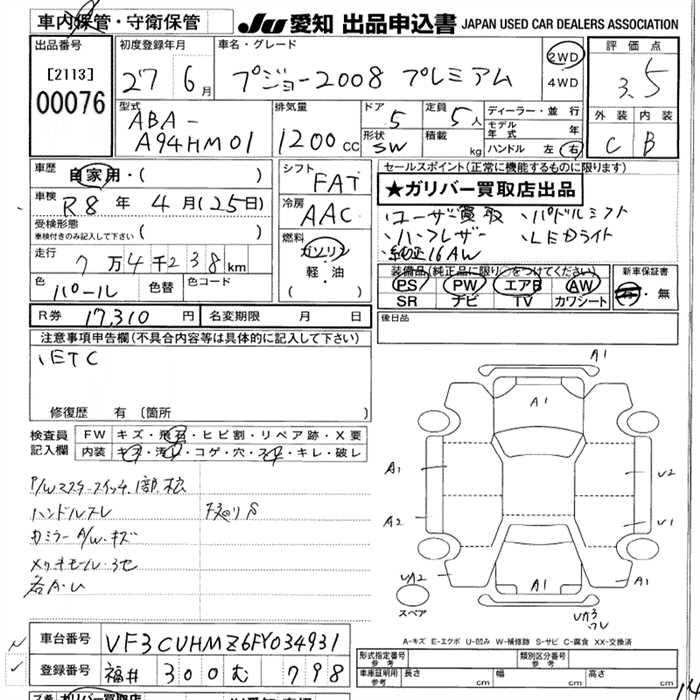 車内保管・守衛保管
JU 愛知 出品申込書 JAPAN USED CAR DEALERS ASSOCIATION
出品番号
[2113]
00076
初度登録年月
27 6月
車名・グレード
プジョー2008 プレミアム
2WD
4WD
評価点
3.5
型式
ABA-
A94HM01
排気量
1200cc
ドア
5
定員
5人
形状
SW
積載
kg
ディーラー・並行
モデル年式 年
ハンドル 左 右
外装 内装
C B
車歴
自家用・( )
車検
R8年 4月(25日)
受検形態
車検付きのみ記入して下さい ( )
走行
7万4千238km
色
パール
色替
色コード
シフト
FAT
冷房
AAC
燃料
ガソリン
軽・油
( )
セールスポイント(正常に機能するものに限ります)
★ガリバー買取店出品
、ユーザー買取 、パドルシフト
、ハーフレザー 、LEDライト
、純正16AW
装備品(純正品に限り○をつけてください) 新車保証書
PS PW エアB AW
SR ナビ TV カワシート
有・無
R券 17,310円 名変期限 月 日
後日品
注意事項申告欄(不具合内容等は具体的に記入して下さい)
、ETC
修復歴 有 (箇所 )
検査員
記入欄
FW キズ・飛石・ヒビ割・リペア跡・X要
内装 キズ・汚れ・コゲ・穴・スレ・キレ・破レ
P/Wマスタースイッチ部
ハンドルスレ
A1
A1
A1
A2
U2
U1
UA2
A1
スペア
A-キズ E-エクボ U-凹み W-補修跡 S-サビ C-腐食 XX-交換済
車台番号
VF3CUHMZ6FY034931
登録番号
福井 300 む 798
形式指定番号
参考
類別区分番号
参考
車庫証明用
参考
長さ cm 幅 cm 高さ cm
ガリバー買取店